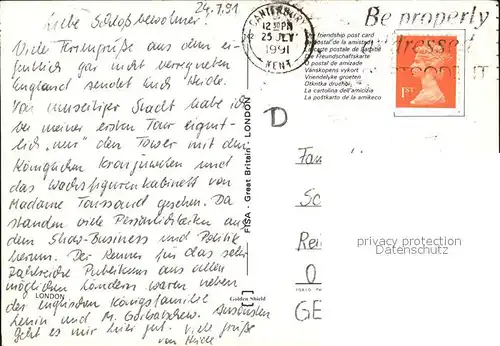 24.7.91
Liebe Schloßbewohner!
Viele Feriengrüße aus dem ei-
gentlich gar nicht verregneten
England sendet Euch Heide.
Von unseliger Stadt habe ich
bei meiner ersten Tour eigent-
lich „nur" den Tower mit den
Königlichen Kronjuwelen und
das Wachsfigurenkabinett von
Madame Toussand gesehen. Da
standen viele Persönlichkeiten aus
dem Show-Business und Politik
herum. Der Renner für das sehr
zahlreiche Publikum aus allen
möglichen Ländern waren neben
der englischen Königsfamilie
Lenin und M. Gorbatschow. Ansonsten
geht es mir hier gut. Viele Grüße
von Heide
LONDON
FISA - Great Britain - LONDON
Golden Shield
CANTERBURY
12 PM
25 JLY
1991
KENT
Be properly
addressed
POSTCODE IT
friendship postcard
postal de la amistad
carte postale de l'amitié
Freundschaftskarte
postal de amizade
Vänskapens vykort
Vriendelijke groeten
Otkritka druzhbi
La cartolina dell'amicizia
La postkarto de la amikeco
1ST
D
Fam
Sc
Rei
O
GE
privacy protection
Datenschutz